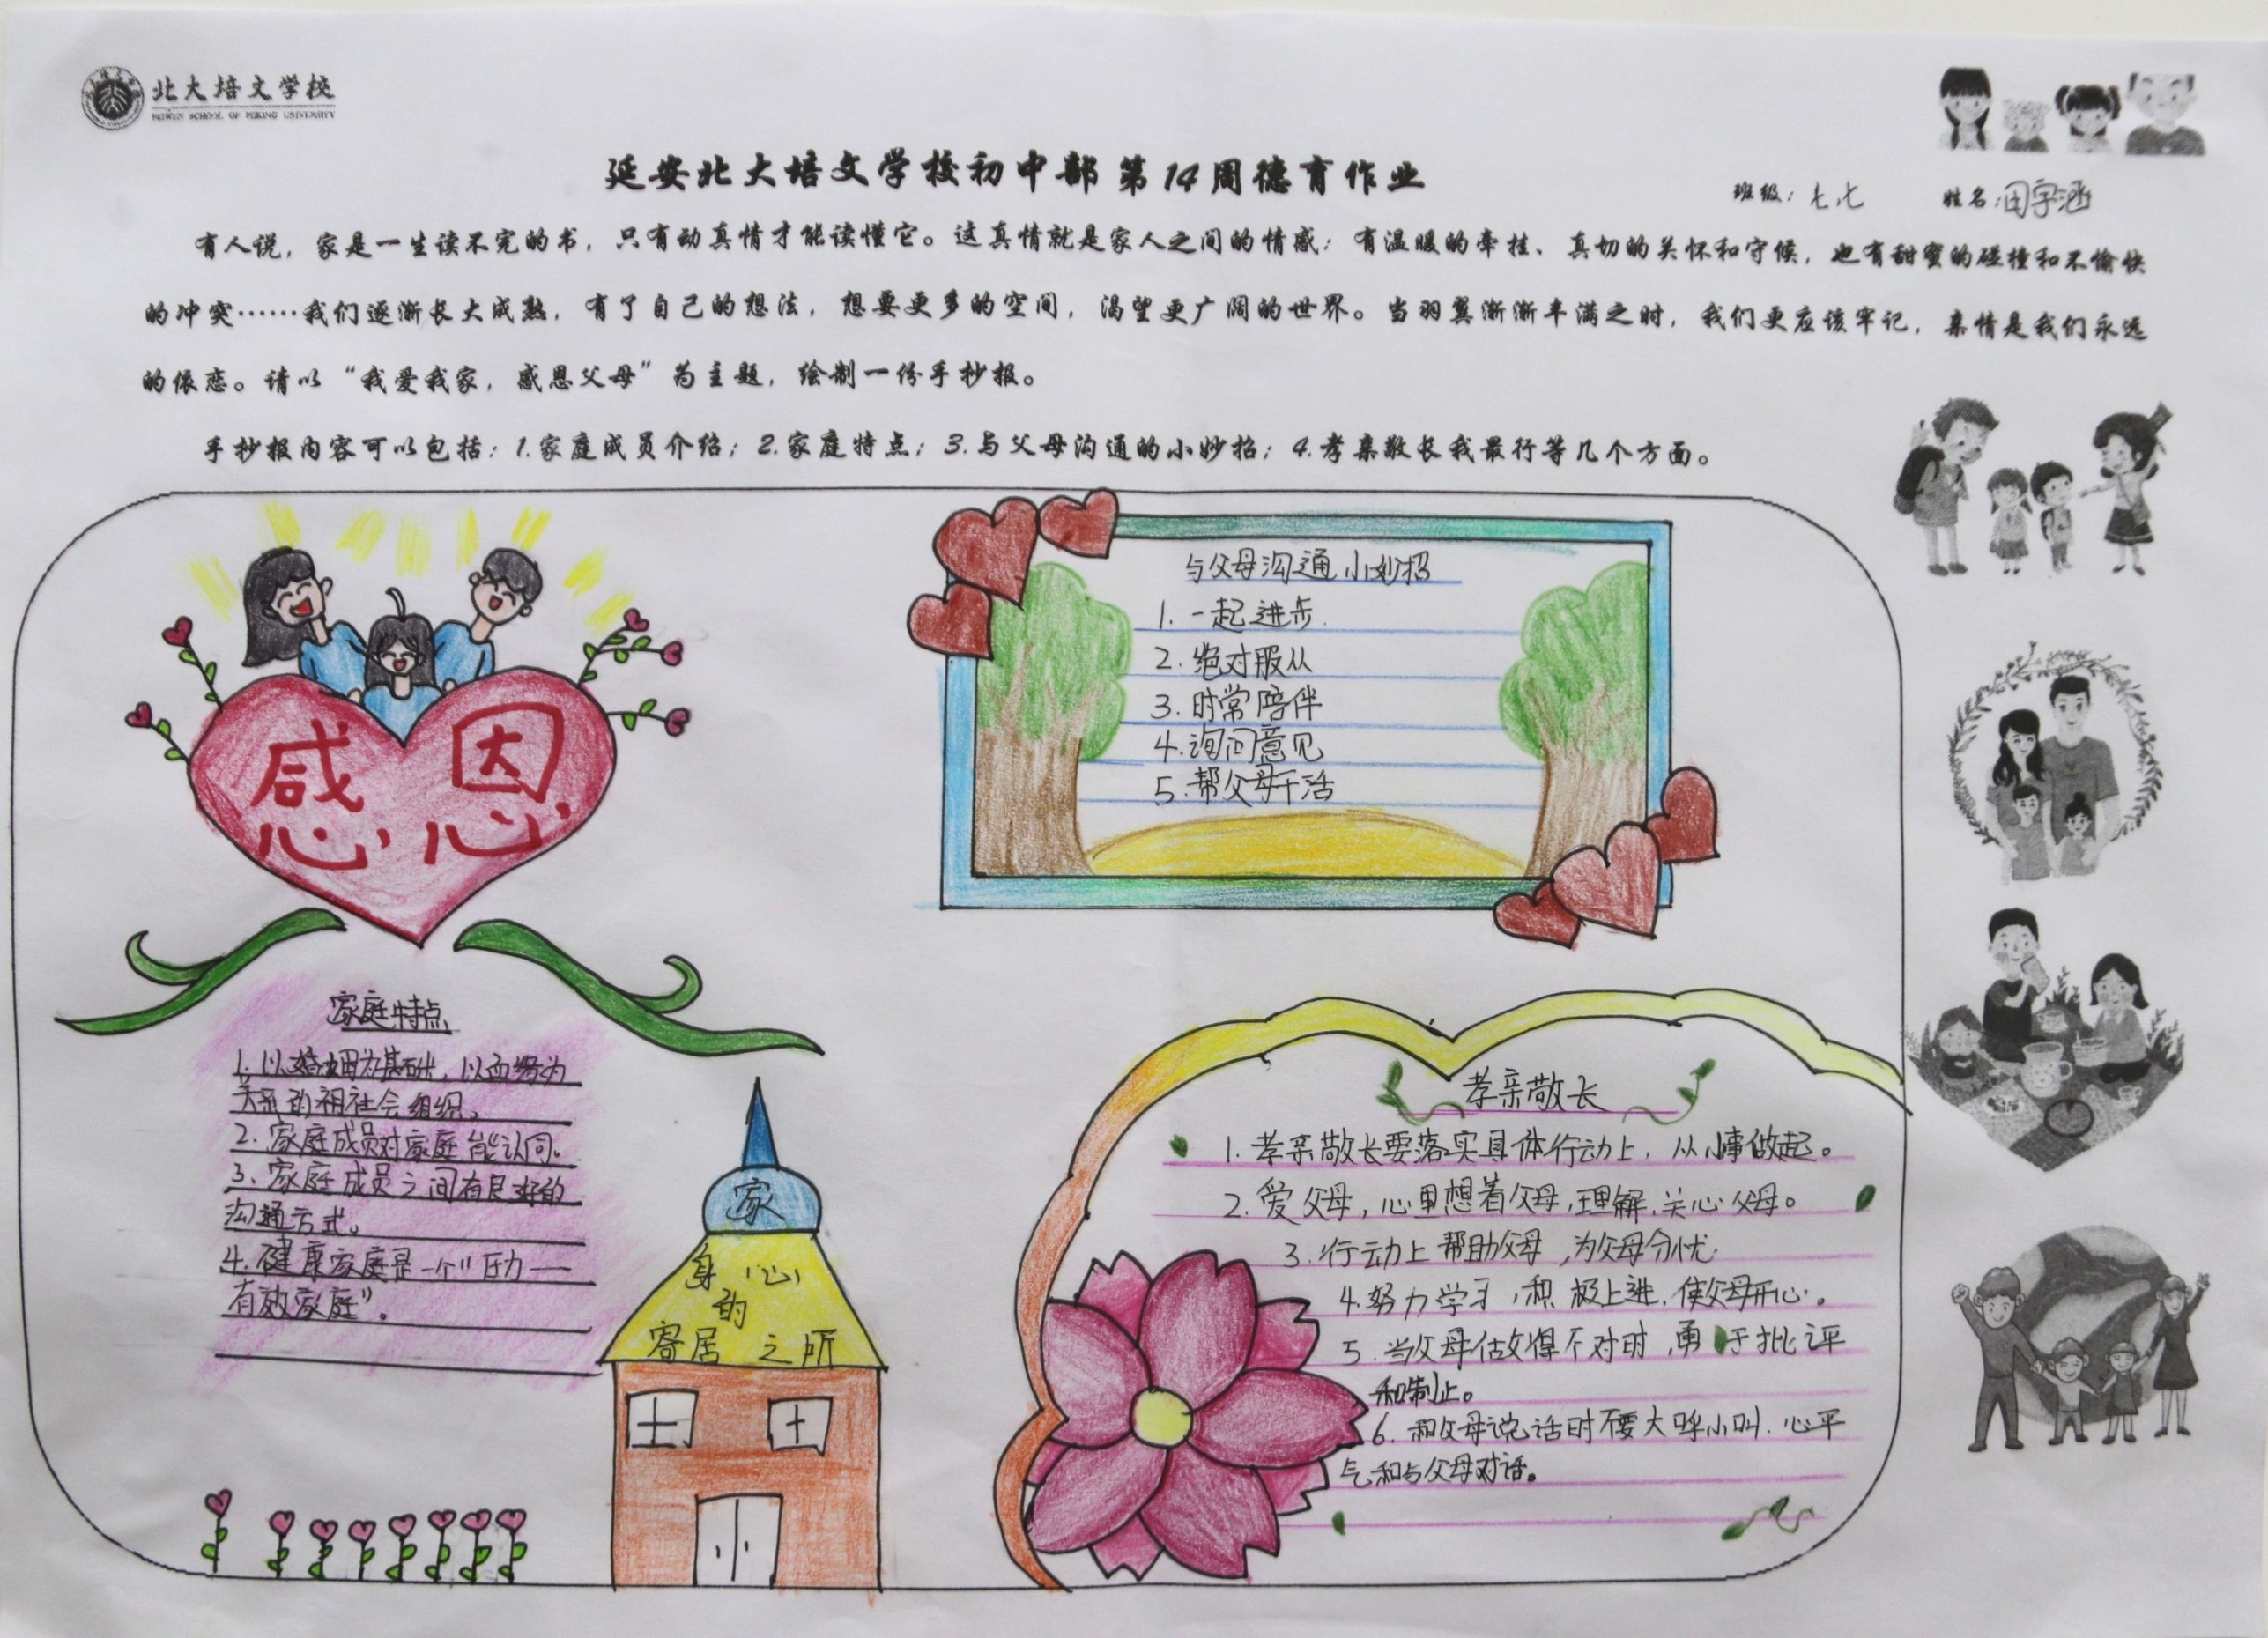 北大培文学校
PEIWEN SCHOOL OF PEKING UNIVERSITY
延安北大培文学校初中部第14周德育作业
班级：七、七 姓名：田宇涵
有人说，家是一生读不完的书，只有动真情才能读懂它。这真情就是家人之间的情感：有温暖的牵挂、真切的关怀和守候，也有甜蜜的碰撞和不愉快
的冲突……我们逐渐长大成熟，有了自己的想法，想要更多的空间，渴望更广阔的世界。当羽翼渐渐丰满之时，我们更应该牢记，亲情是我们永远
的依恋。请以“我爱我家，感恩父母”为主题，绘制一份手抄报。
手抄报内容可以包括：1.家庭成员介绍；2.家庭特点；3.与父母沟通的小妙招；4.孝亲敬长我最行等几个方面。
感恩
与父母沟通小妙招
1.一起进步.
2.绝对服从
3.时常陪伴
4.询问意见
5.帮父母干活
家庭特点
1.以婚姻为基础，以血缘为
关系的祖社会组织。
2.家庭成员对家庭能认同。
3.家庭成员之间有良好的
沟通方式。
4.健康家庭是一个“压力一
有效家庭”。
家
身心
的
寄居之所
孝亲敬长
1.孝亲敬长要落实具体行动上，从小事做起。
2.爱父母，心里想着父母，理解、关心父母。
3.行动上帮助父母，为父母分忧.
4.努力学习，积极上进，使父母开心。
5.当父母做得不对时，勇于批评
和制止。
6.和父母说话时不要大呼小叫.心平
气和与父母对话。